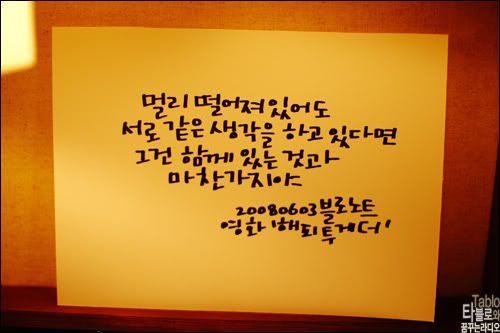 멀리 떨어져 있어도
서로 같은 생각을 하고 있다면
그건 함께 있는 것과
마찬가지야
20080603 블로노트
영화 '해피투게더'
Tablo
타블로와
꿈꾸는라디오